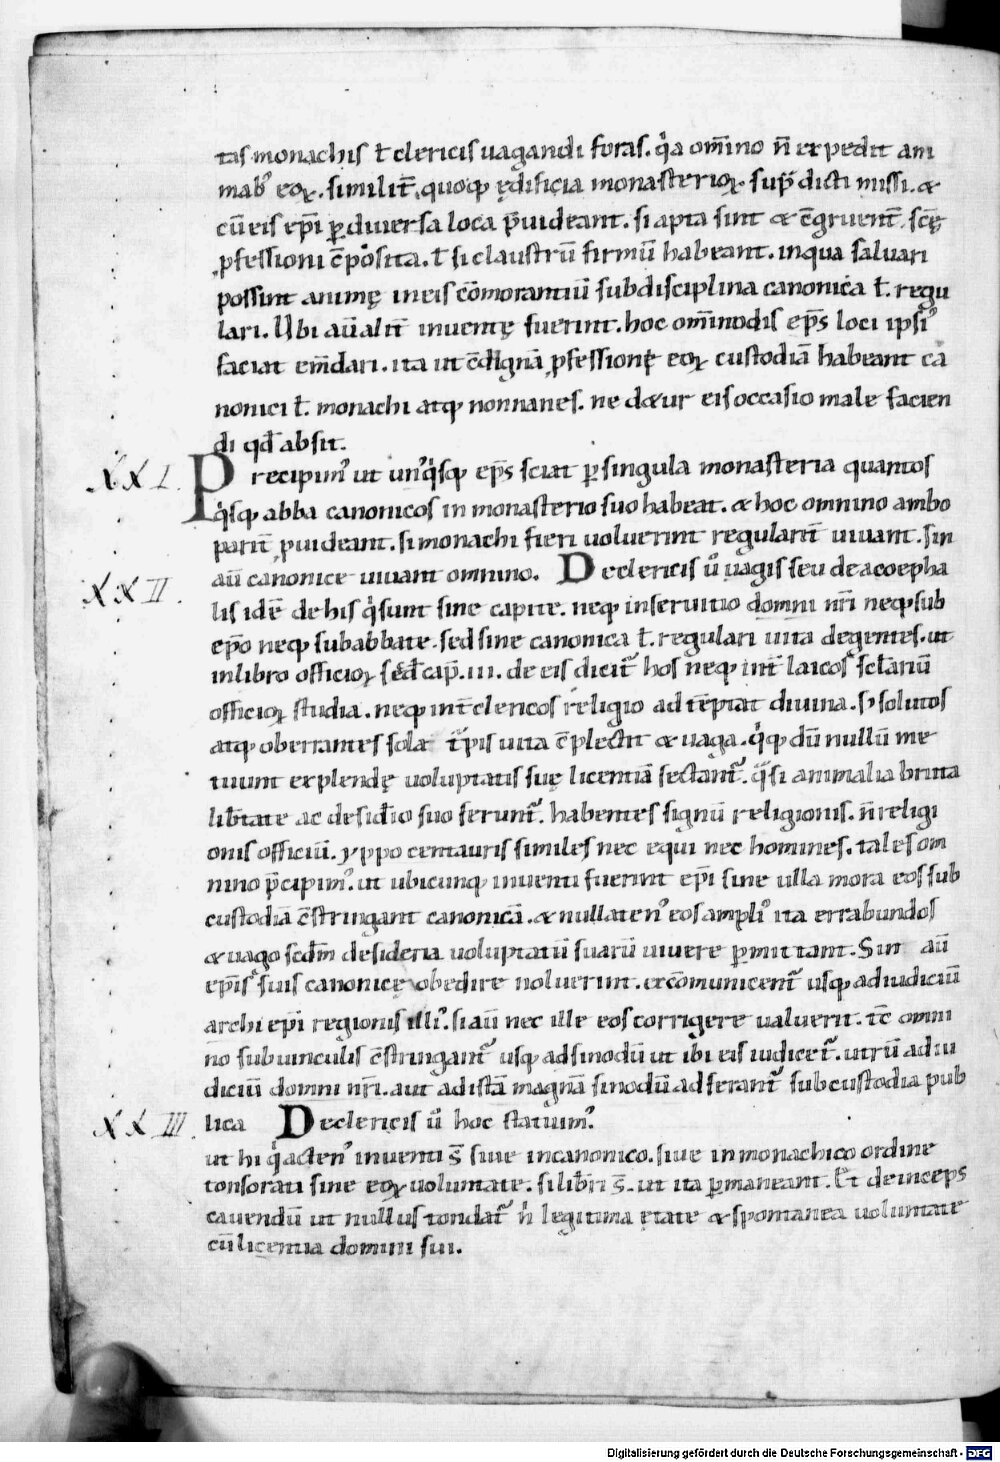 tas monachis ł clericis uagandi foras. q̇a om̄ino n̄ expedit ani
mabꝰ eoꝝ. similit̄ quoqꝫ ędificia monasterioꝝ sup̄dicti missi. &
cū eis ep̄i ꝑ diuersa loca p̄uideant. si apta sint & c̄gruent̄ sc̄ę
ꝓfessioni c̄posita. ł si claustrū firmū habeant. inqua saluari
possint animę ineis c̄morantiū subdisciplina canonica ł regu
lari. Ubi aū alit̄ inuentę fuerint. hoc om̄imodis ep̄s loci ipsiꝰ
faciat em̄dari. ita ut c̄dignā ꝓfessionę eoꝝ custodiā habeant ca
nonici ł monachi atqꝫ nonnanes. ne d&ur eis occasio male facien
di qđ absit.
XXI. Precipimꝰ ut unꝰq̇sqꝫ ep̄s sciat ꝑ singula monasteria quantos
q̇sqꝫ abba canonicos in monasterio suo habeat. & hoc omnino ambo
parit̄ ꝓuideant. si monachi fieri uoluerint regularit̄ uiuant. sin
XXII. aū canonice uiuant omnino. De clericis ū uagis seu de acoepha
lis idē de his q̇ sunt sine capite. neqꝫ inseruitio domni nr̄i neqꝫ sub
ep̄o neqꝫ sub abbate. sed sine canonica ł regulari uita degentes. ut
inlibro officioꝝ scđ cap̄. III. de eis dicit̄ hos neqꝫ int̄ laicos sclariū
officioꝝ studia. neqꝫ int̄ clericos religio adtēptat diuina. s; solutos
atqꝫ oberrantes sola t̄pis uita c̄plectit & uaga. q̇qꝫ dū nullū me
tuunt explendę uoluptatis suę licentiā sectant̄. q̄si animalia bruta
lib̄tate ac desid̄io suo ferunt̄. habentes signū religionis. n̄ religi
onis officiū. yppocentauris similes nec equi nec homines. tales om
nino p̄cipimꝰ. ut ubicunqꝫ inuenti fuerint ep̄i sine ulla mora eos sub
custodiā c̄stringant canonicā. & nullatenꝰ eos ampliꝰ ita errabundos
& uagos scdm̄ desideria uoluptatū suarū uiuere ꝑmittant. Sin aū
ep̄is suis canonicę obedire noluerint. exc̄omunicent̄ usqꝫ adiudiciū
archiep̄i regionis illiꝰ. si aū nec ille eos corrigere ualuerit. tc̄ omni
no sub uinculis c̄stringant̄ usqꝫ adsinodū ut ibi eis iudicet̄. utrū ad iu
diciū domni nr̄i. aut ad istā magnā sinodū adferant̄ sub custodia pub
XXIII. lica De clericis ū hoc statuimꝰ.
ut hi q̇ actenꝰ inuenti s̄ siue incanonico. siue inmonachico ordine
tonsorati sine eoꝝ uoluntate. si lib̄i s̄. ut ita ꝑmaneant. Et deinceps
cauendū ut nullus tondat̄ n̄ legitima ętate & spontanea uoluntate
cū licentia domini sui.
Digitalisierung gefördert durch die Deutsche Forschungsgemeinschaft - DFG